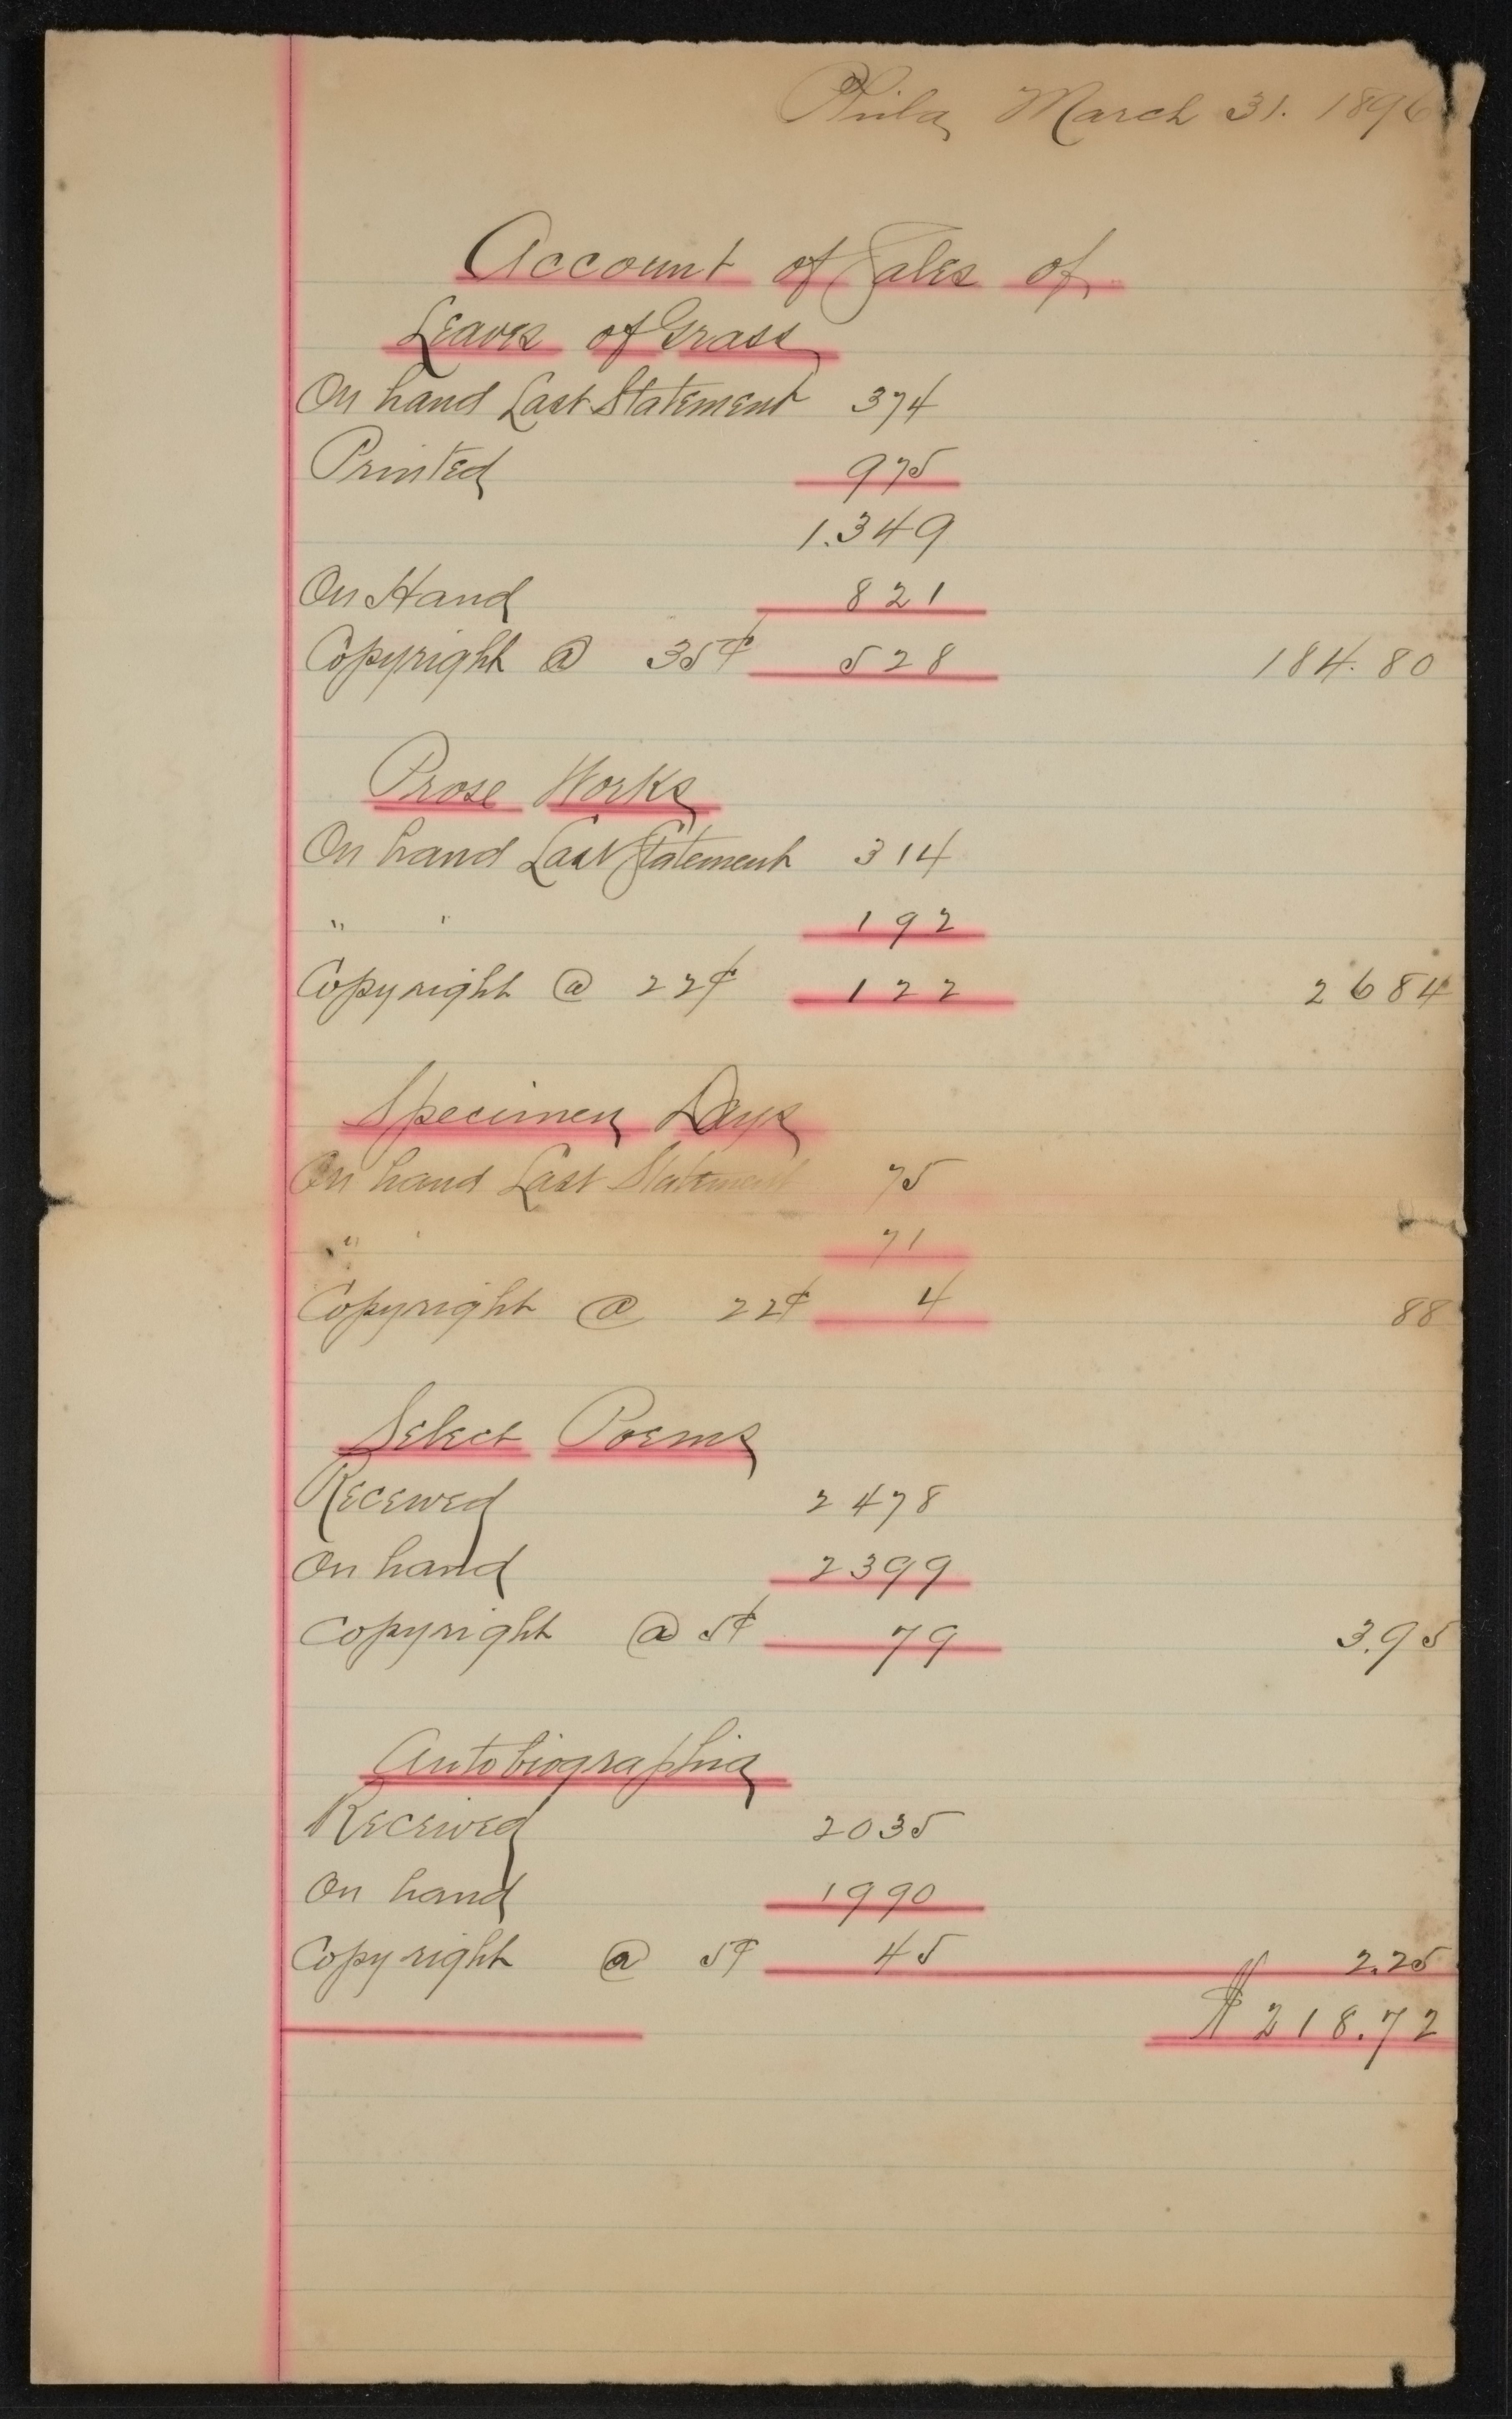 Phila March 31. 1896
Account of Sales of
Leaves of Grass
On hand Last Statement 374
Printed 975
1.349
On Hand 821
Copyright @ 35¢ 528 184.80
Prose Works
On hand Last Statement 314
" " 192
Copyright @ 22¢ 122 2684
Specimen Days
On hand Last Statement 75
" " 71
Copyright @ 22¢ 4 88
Select Poems
Received 2478
On hand 2399
Copyright @ 5¢ 79 3.95
Autobiographia
Received 2035
On hand 1990
Copyright @ 5¢ 45 2.25
$218.72